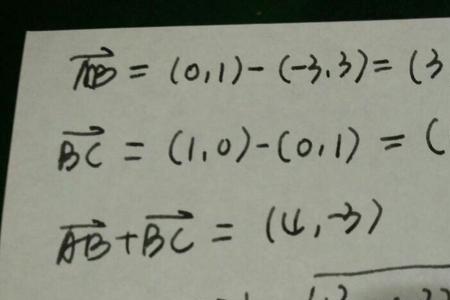 AB = (0,1)-(-3,3)= (3
BC = (1,0)-(0,1) = (
AB+BC = (4,-3)